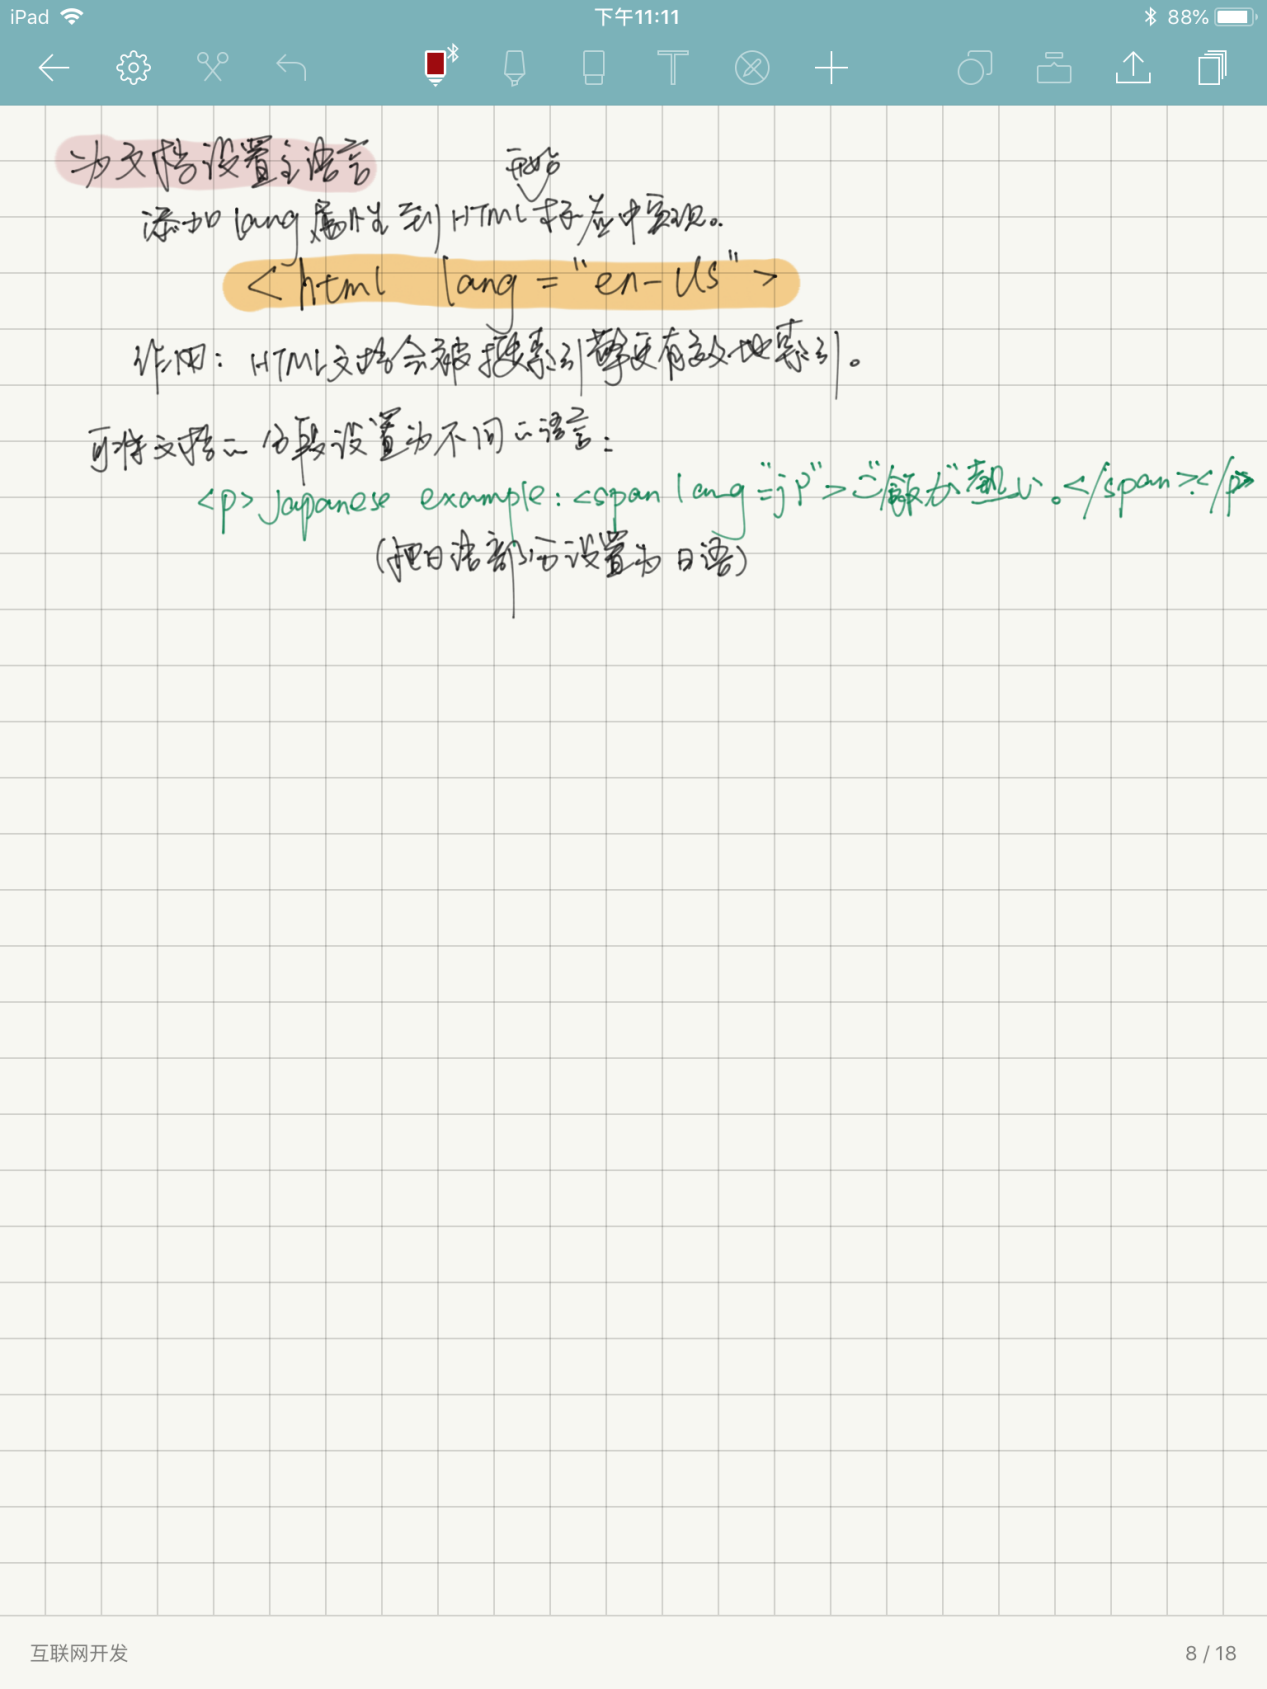 iPad 下午11:11 88%
T
为文档设置主语言
开始
添加lang属性到HTML标签中实现。
<html lang="en-US">
作用：HTML文档会被搜索引擎更有效地索引。
可将文档的分段设置为不同的语言：
<p>Japanese example:<span lang="jp">ご飯が熱い。</span>.</p>
(把日语部分设置为日语)
互联网开发 8 / 18